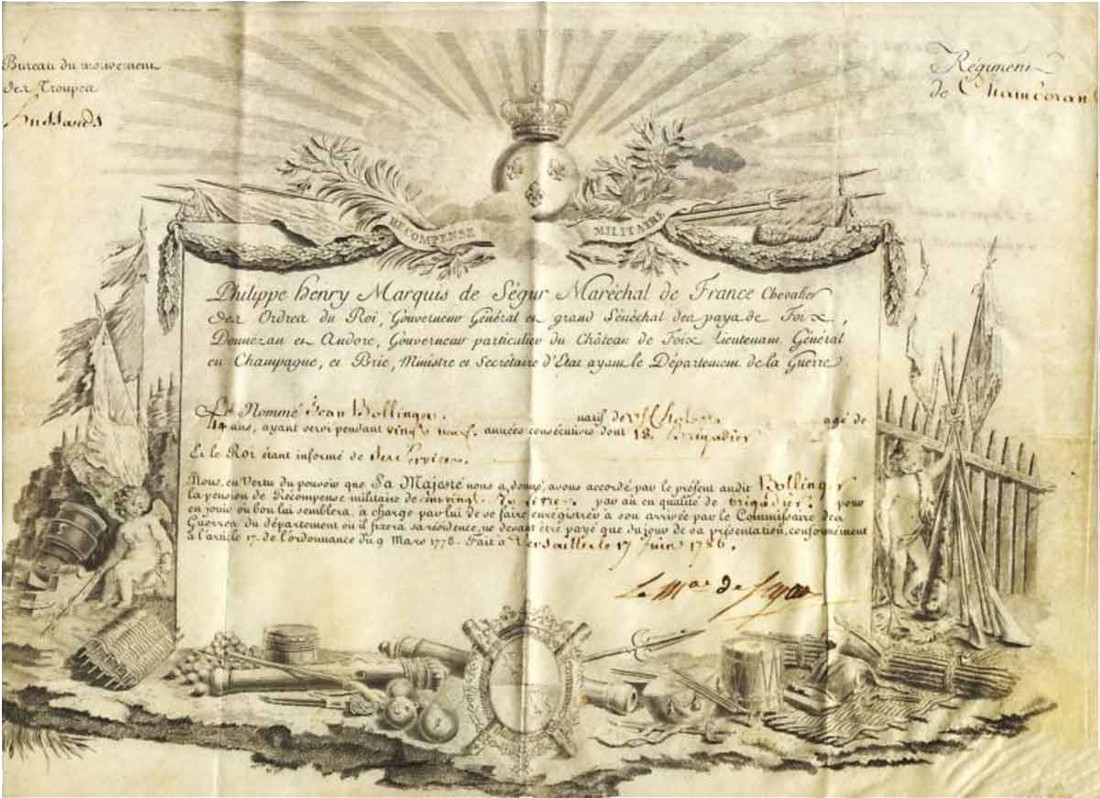 Bureau du mouvement
des Troupes
Hussards
Régiment
de Chamboran
RÉCOMPENSE MILITAIRE
Philippe Henry Marquis de Ségur Maréchal de France Chevalier
des Ordres du Roi, Gouverneur Général et grand Sénéchal des pays de Foix,
Donnezan et Andore, Gouverneur particulier du Château de Foix Lieutenant Général
en Champagne, et Brie, Ministre et Secrétaire d'Etat ayant le Département de la Guerre
Le Nommé Jean Bollinger natif de agé de
44 ans, ayant servi pendant vingt neuf années consécutives dont 18 brigadier
Et le Roi étant informé de ses Services
Nous, en Vertu du pouvoir que Sa Majesté nous a donné, avons accordé par le présent audit Bollinger
la pension de Récompense militaire de par an en qualité de brigadier pour
en jouir où bon lui semblera, à charge par lui de se faire enregistrer à son arrivée par le Commissaire des
Guerres du département où il fixera sa résidence, ne devant être payé que du jour de sa présentation, conformément
à l'article 17 de l'ordonnance du 9 Mars 1778. Fait à Versailles le 17 Juin 1786.
Le Mal de Ségur